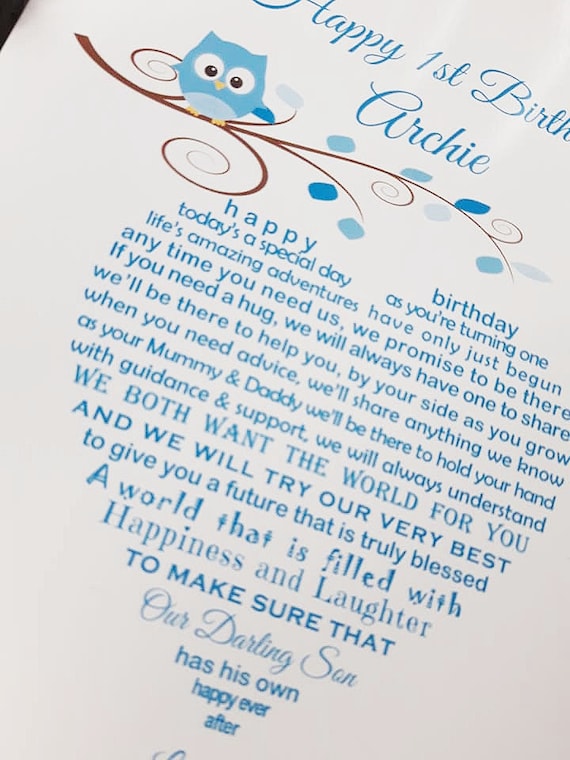 Happy 1st Birth
Archie
happy birthday
today's a special day as you're turning one
life's amazing adventures have only just begun
any time you need us, we promise to be there
If you need a hug, we will always have one to share
we'll be there to help you, by your side as you grow
when you need advice, we'll share anything we know
as your Mummy & Daddy we'll be there to hold your hand
with guidance & support, we will always understand
WE BOTH WANT THE WORLD FOR YOU
AND WE WILL TRY OUR VERY BEST
to give you a future that is truly blessed
A world that is filled with
Happiness and Laughter
TO MAKE SURE THAT
Our Darling Son
has his own
happy ever
after